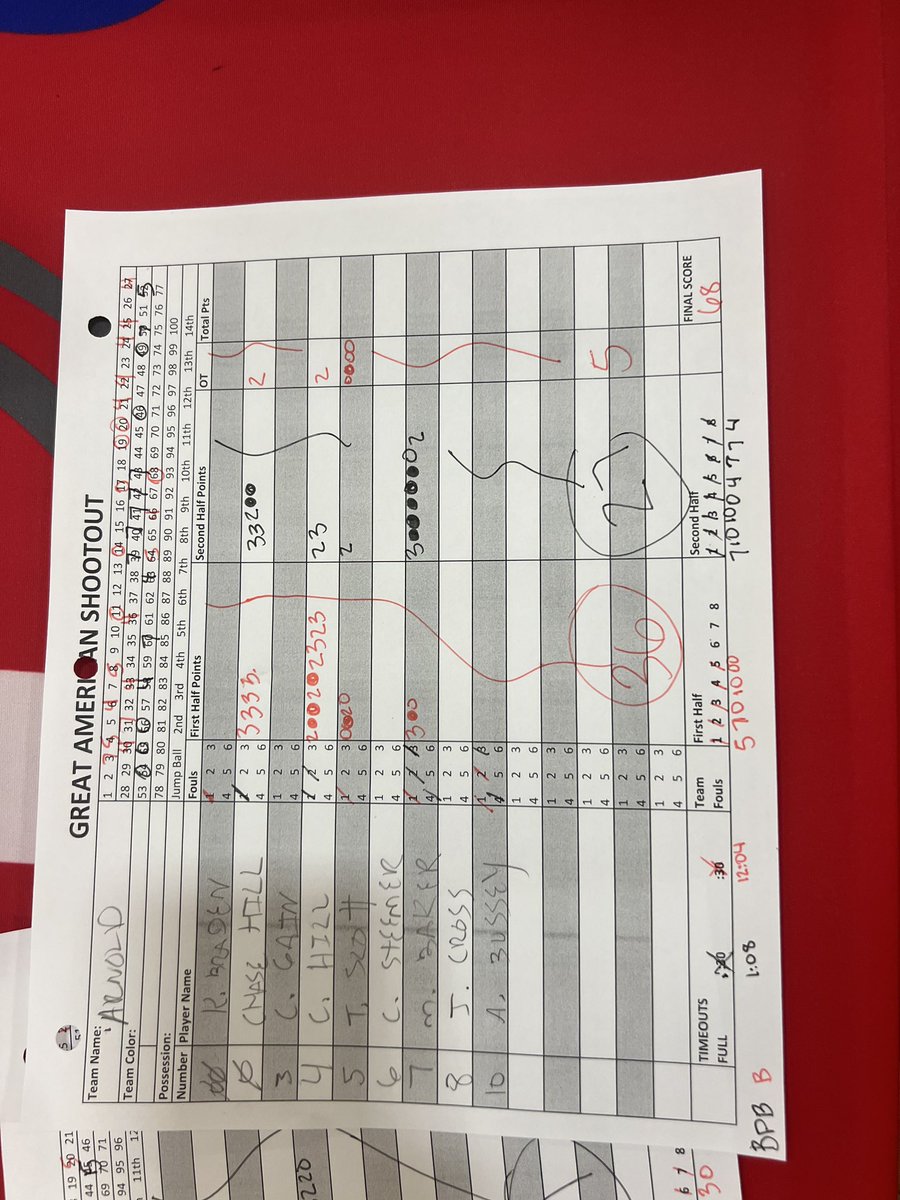 GREAT AMERICAN SHOOTOUT
Team Name: ARNOLD
1 2 3 4 5 6 7 8 9 10 11 12 13 14 15 16 17 18 19 20 21 22 23 24 25 26 27
Team Color:
28 29 30 31 32 33 34 35 36 37 38 39 40 41 42 43 44 45 46 47 48 49 50 51 52
53 54 55 56 57 58 59 60 61 62 63 64 65 66 67 68 69 70 71 72 73 74 75 76 77
Possession:
78 79 80 81 82 83 84 85 86 87 88 89 90 91 92 93 94 95 96 97 98 99 100
Jump Ball 2nd 3rd 4th 5th 6th 7th 8th 9th 10th 11th 12th 13th 14th
Number Player Name Fouls First Half Points Second Half Points OT Total Pts
00 K. BRADEN 1 2 3
4 5 6
0 CHASE HILL 1 2 3 3333 33200 2
4 5 6
3 C. GAIN 1 2 3
4 5 6
4 C. HILL 1 2 3 200202323 23 2
4 5 6
5 T. SCOTT 1 2 3 0020 2 0000
4 5 6
6 C. STEEMER 1 2 3
4 5 6
7 M. BAKER 1 2 3 300 300000002
4 5 6
8 J. CROSS 1 2 3
4 5 6
10 A. BUSSEY 1 2 3
4 5 6
1 2 3
4 5 6
1 2 3
4 5 6
1 2 3
4 5 6
1 2 3 36 27 5
4 5 6
1 2 3
4 5 6
TIMEOUTS Team First Half Second Half FINAL SCORE
FULL :30 :30 Fouls 1 2 3 4 5 6 7 8 1 2 3 4 5 6 7 8 68
1:08 12:04 5701000 7101004774
BPB B
19 20 21
44 45 46
69 70 71
94 95 96
11th 12
220
6 7 8
30